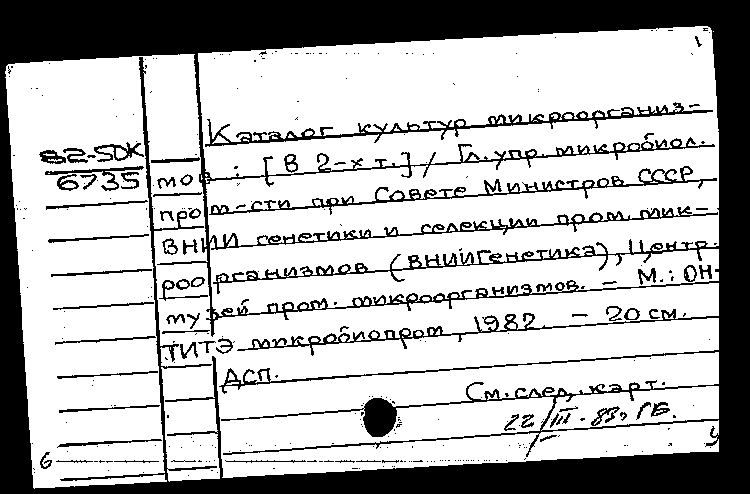 1
Каталог культур микроорганиз-
82-5DK
6735
мов : [В 2-х т.] / Гл. упр. микробиол.
пром-сти при Совете Министров СССР,
ВНИИ генетики и селекции пром. мик-
роорганизмов (ВНИИгенетика), Центр.
музей пром. микроорганизмов. - М.: ОН-
ТИТЭ микробиопром, 1982. - 20 см.
ДСП.
См. след. карт.
22/III-83, ГБ.
б